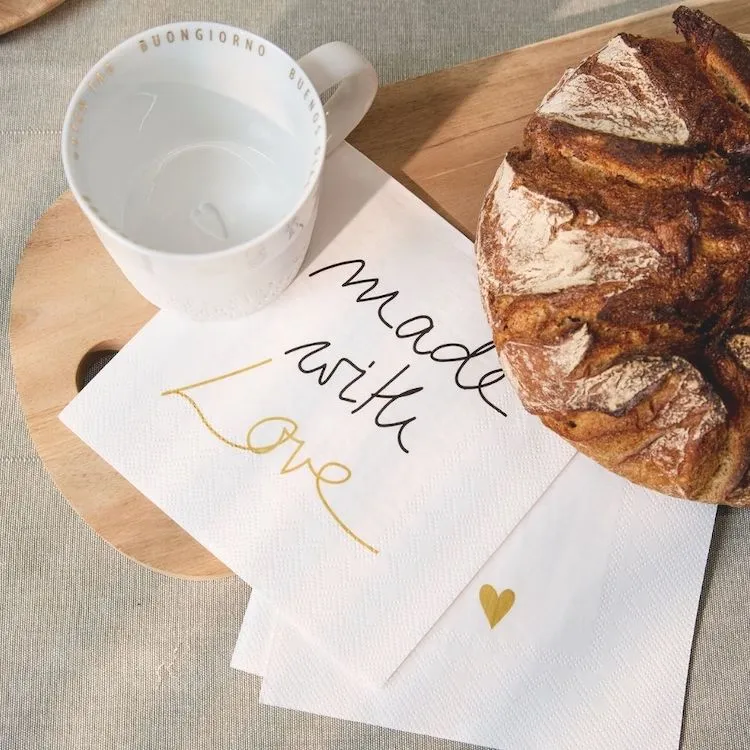 BUONGIORNO
BUENOS
made
with
Love